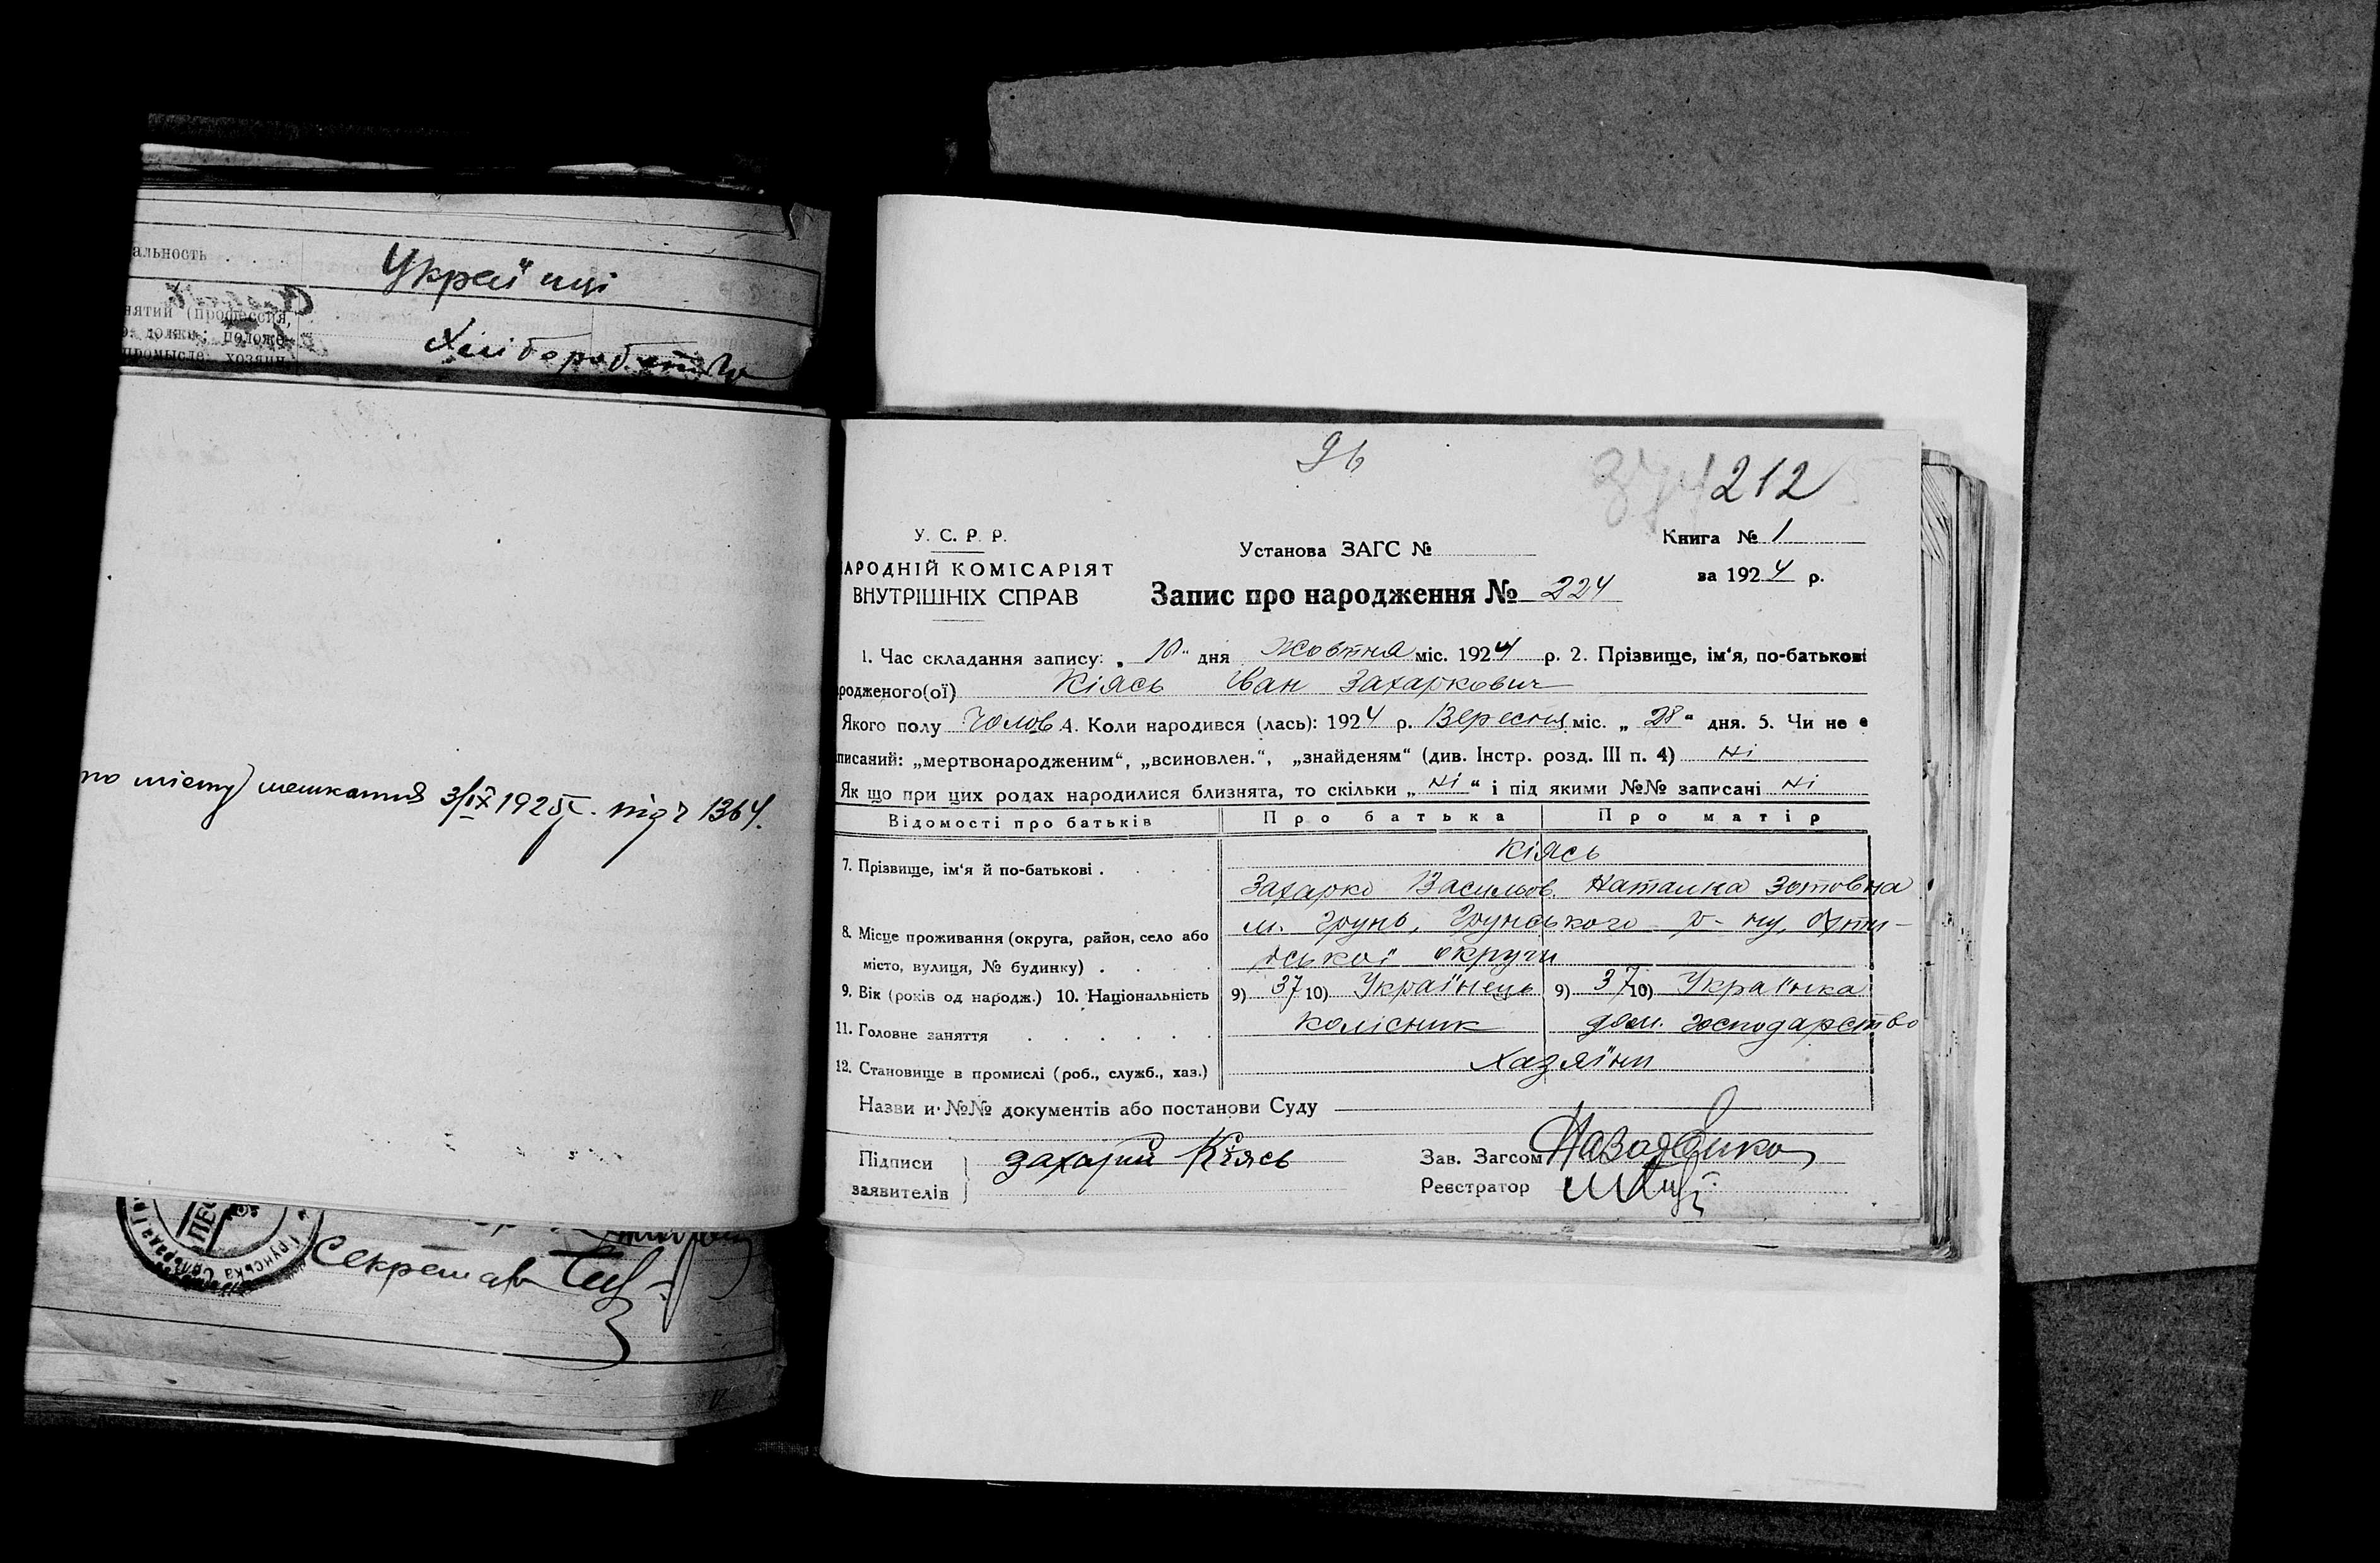 альность . . . .
Українці
нятий (професcия,
должн; положе-
промысле: хозяин
Хліборобство
по місту) мешкання 3/IX 1925 р. під ч 1364.
Грунська Сільрада
Секретар
96
374 212
У. С. Р. Р.
АРОДНІЙ КОМІСАРІЯТ
ВНУТРІШНІХ СПРАВ
Установа ЗАГС №
Книга № 1
за 1924 р.
Запис про народження № 224
1. Час складання запису: „ 10 " дня Жовтня міс. 1924 р. 2. Прізвище, ім'я, по-батькові
родженого(ої) Кіясь Іван Захаркович
Якого полу Чолов 4. Коли народився (лась): 1924 р. Вересня міс. „ 28 " дня. 5. Чи не є
писаний: „мертвонародженим", „всиновлен.", „знайденям" (див. Інстр. розд. III п. 4) Ні
Як що при цих родах народилися близнята, то скільки „ Ні " і під якими №№ записані Ні
Відомості про батьків Про батька Про матір
7. Прізвище, ім'я й по-батькові . . . . Кіясь
Захарко Васильов. Наталка Зотовна
8. Місце проживання (округа, район, село або м. Грунь, Грунського р-ну, Охти-
місто, вулиця, № будинку) . . . . рської округи
9. Вік (років од народж.) 10. Національність 9) 37 10) Українець 9) 37 10) Українка
11. Головне заняття . . . . . . Колісник дом. господарство
12. Становище в промислі (роб., служб., хаз.) Хазяїни
Назви и №№ документів або постанови Суду
Підписи Захарій Кіясь Зав. Загсом
заявителів Реєстратор